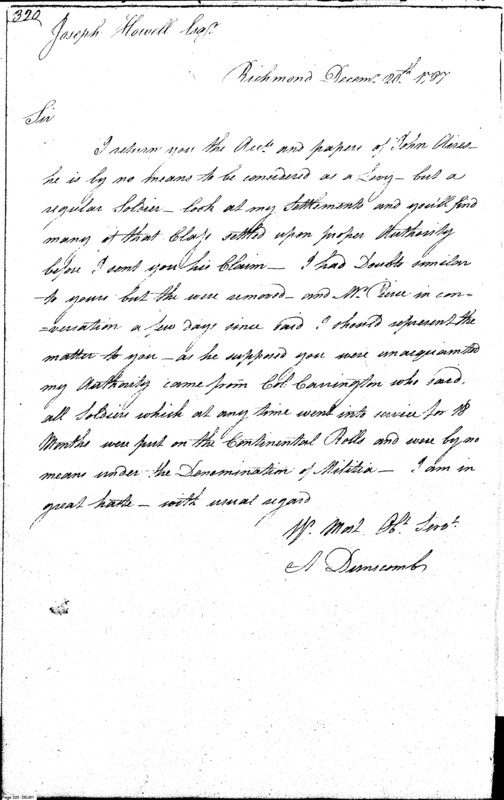 320
Joseph Howell Esqr.
Richmond Decemr. 20th. 1787
Sir
I return you the Accts. and papers of John Aires
he is by no means to be considered as a Levy – but a
regular Soldier – look at my Settlements and you'll find
many of that Class settled upon proper Authority
before I sent you his Claim – I had Doubts similar
to yours but the were removed – and Mr. Pierce in con-
=versation a few days since said I should represent the
matter to you – as he supposed you were unacquainted
my Authority came from Col. Carrington who said,
all Soldiers which at any time went into service for 18
Months were put on the Continental Rolls and were by no
means under the Denomination of Militia – I am in
great haste – with usual regard
Yr. Most Obt. Servt.
A Dunscomb